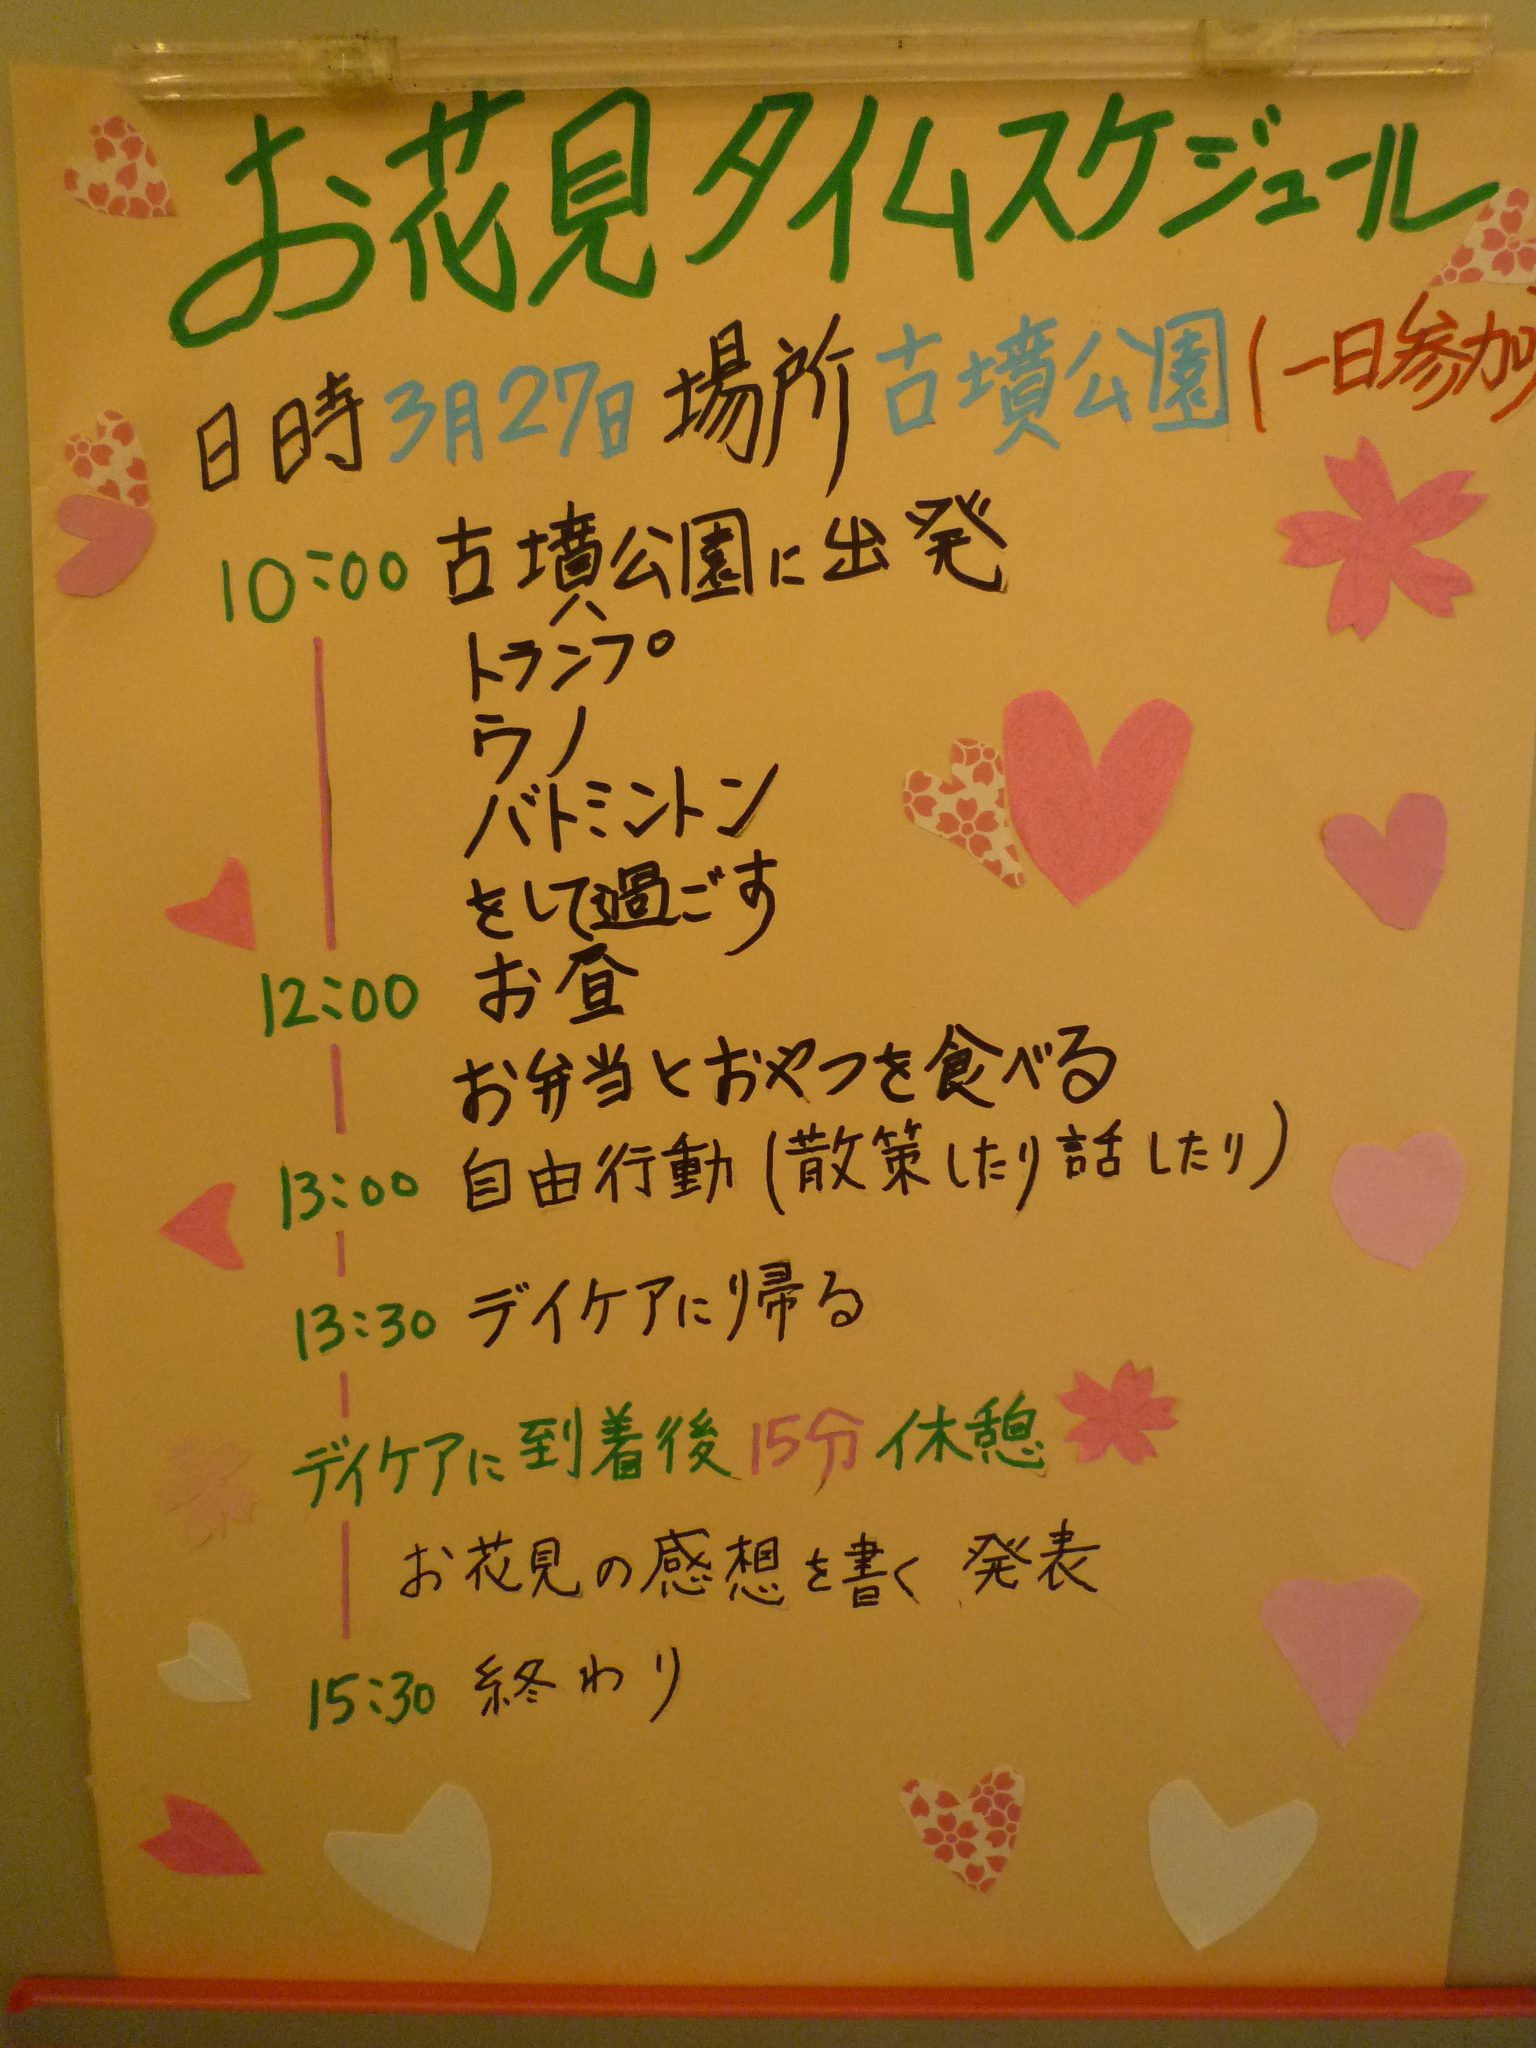 お花見タイムスケジュール
日時 3月27日 場所 古墳公園 (一日参加)
10:00 古墳公園に出発
トランプ
ウノ
バトミントン
をして過ごす
12:00 お昼
お弁当とおやつを食べる
13:00 自由行動(散策したり話したり)
13:30 デイケアに帰る
デイケアに到着後15分休憩
お花見の感想を書く 発表
15:30 終わり